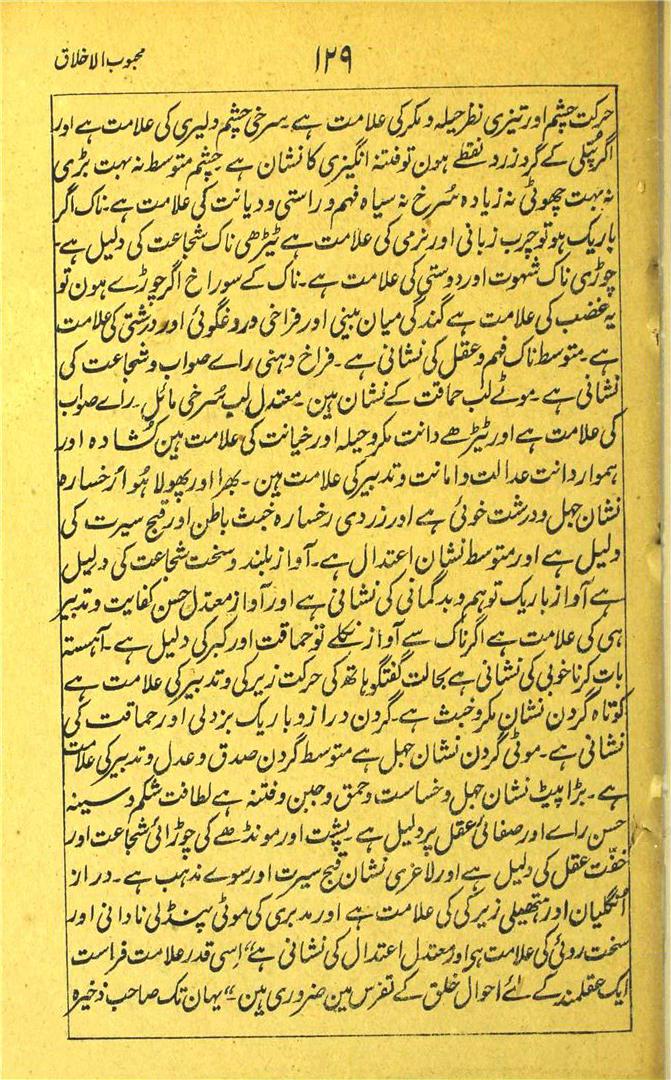 محبوب الاخلاق
۱۲۹
حرکت چشم اور تیزی نظر حیلہ و مکر کی علامت ہے۔ سرخی چشم دلیری کی علامت ہے اور
اگر پتلی کے گرد زرد نقطے ہون تو فتنہ انگیزی کا نشان ہے چشم متوسط نہ بہت بڑی
نہ بہت چھوٹی نہ زیادہ سُرخ نہ سیاہ فہم و راستی و دیانت کی علامت ہے۔ ناک اگر
باریک ہو تو چرب زبانی اور نرمی کی علامت ہے ٹیڑھی ناک شجاعت کی دلیل ہے۔
چوڑی ناک شہوت اور دوستی کی علامت ہے۔ ناک کے سوراخ اگر چوڑے ہون تو
یہ غضب کی علامت ہے گندگی میان بینی اور فراخی دروغگوئی اور درشتی کی علامت
ہے۔ متوسط ناک فہم و عقل کی نشانی ہے۔ فراخ دہنی رائے صواب و شجاعت کی
نشانی ہے۔ موٹے لب حماقت کے نشان ہین۔ معتدل لب سُرخی مائل رائے صواب
کی علامت ہے اور ٹیڑھے دانت مکر و حیلہ اور خیانت کی علامت ہین کشادہ اور
ہموار دانت عدالت و امانت و تدبیر کی علامت ہین۔ بھرا اور پھولا ہُوا رخسارہ
نشان جہل و درشت خوئی ہے اور زردی رخسارہ خبث باطن اور قبح سیرت کی
دلیل ہے اور متوسط نشان اعتدال ہے۔ آواز بلند و سخت شجاعت کی دلیل
ہے آواز باریک توہم و بدگمانی کی نشانی ہے اور آواز معتدل حسن کفایت و تدبیر
ہی کی علامت ہے اگر ناک سے آواز نکلے تو حماقت اور کبر کی دلیل ہے۔ آہستہ
بات کرنا خوبی کی نشانی ہے بحالت گفتگو ہاتھ کی حرکت زیرکی و تدبیر کی علامت ہے
کوتاہ گردن نشان مکر و خبث ہے۔ گردن دراز و باریک بزدلی اور حماقت کی
نشانی ہے۔ موٹی گردن نشان جہل ہے متوسط گردن صدق و عدل و تدبیر کی علامت
ہے۔ بڑا پیٹ نشان جہل و خساست و حمق و جبن و فتنہ ہے لطافت شکم و سینہ
حسن رائے اور صفائی عقل پر دلیل ہے۔ پشت اور مونڈھے کی چوڑائی شجاعت اور
خفّت عقل کی دلیل ہے اور لاغری نشان قبح سیرت اور سوے مذہب ہے۔ دراز
انگلیان اور ہتھیلی زیرکی کی علامت ہے اور مدبری کی موٹی پنڈلی نادانی اور
سخت روئی کی علامت ہی اور معتدل اعتدال کی نشانی ہے" اسی قدر علامت فراست
ایک عقلمند کے لئے احوال خلق کے تفرس مین ضروری ہین۔" یہان تک صاحب ذخیرہ